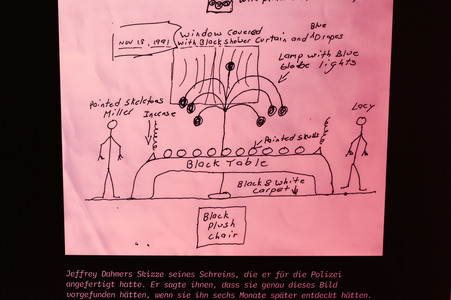 NOV 18, 1991
Window covered
with Black shower curtain and Blue Drapes
Lamp with Blue
Globe lights
Painted Skeletons
Miller
Incense
Lacy
Painted skulls
Black Table
Black & White
Carpet
Black
Plush
Chair
Jeffrey Dahmers Skizze seines Schreins, die er für die Polizei
angefertigt hatte. Er sagte ihnen, dass sie genau dieses Bild
vorgefunden hätten, wenn sie ihn sechs Monate später entdeckt hätten.